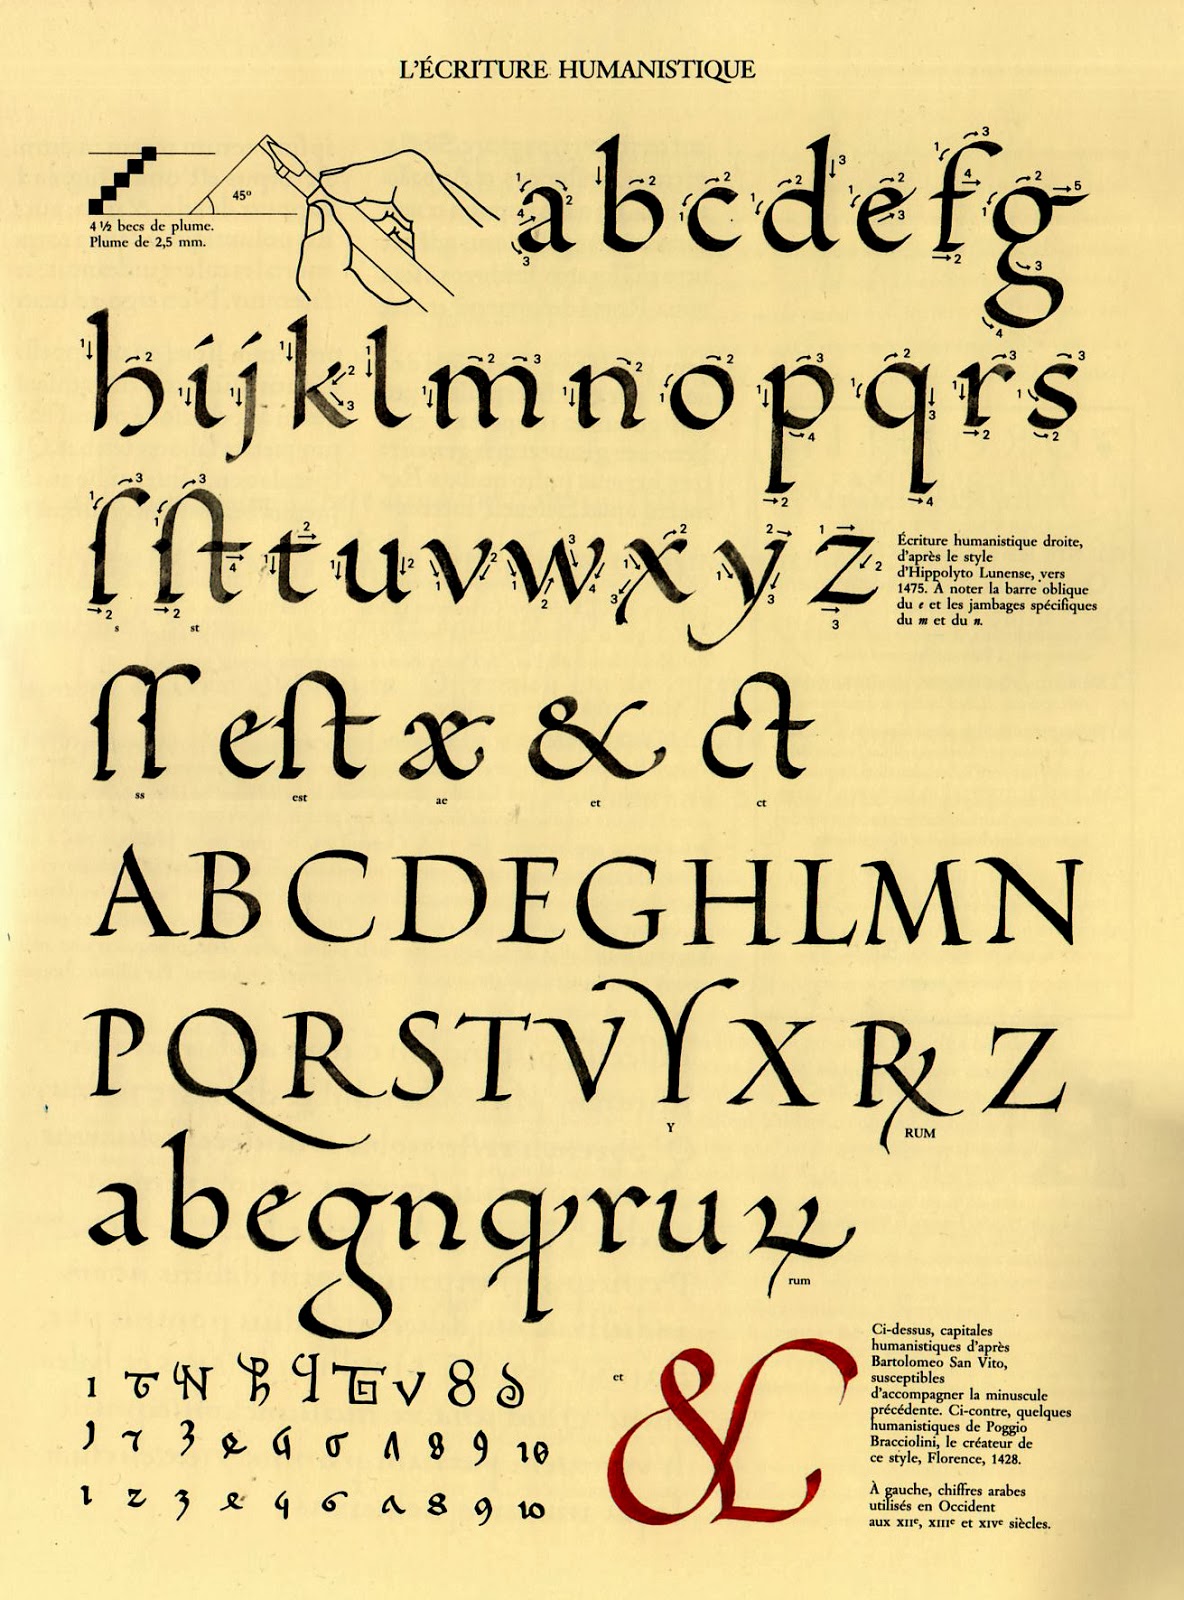 L'ÉCRITURE HUMANISTIQUE
45°
4 ½ becs de plume.
Plume de 2,5 mm.
a b c d e f g
h i j k l m n o p q r s
ſ ſt t u v w x y z
s st
Écriture humanistique droite,
d'après le style
d'Hippolyto Lunense, vers
1475. A noter la barre oblique
du e et les jambages spécifiques
du m et du n.
ſſ eſt æ & ct
ss est ae et ct
A B C D E G H L M N
P Q R S T V Y X R Z
Y RUM
a b e g n q r u
rum
et
&
Ci-dessus, capitales
humanistiques d'après
Bartolomeo San Vito,
susceptibles
d'accompagner la minuscule
précédente. Ci-contre, quelques
humanistiques de Poggio
Bracciolini, le créateur de
ce style, Florence, 1428.
À gauche, chiffres arabes
utilisés en Occident
aux XIIe, XIIIe et XIVe siècles.